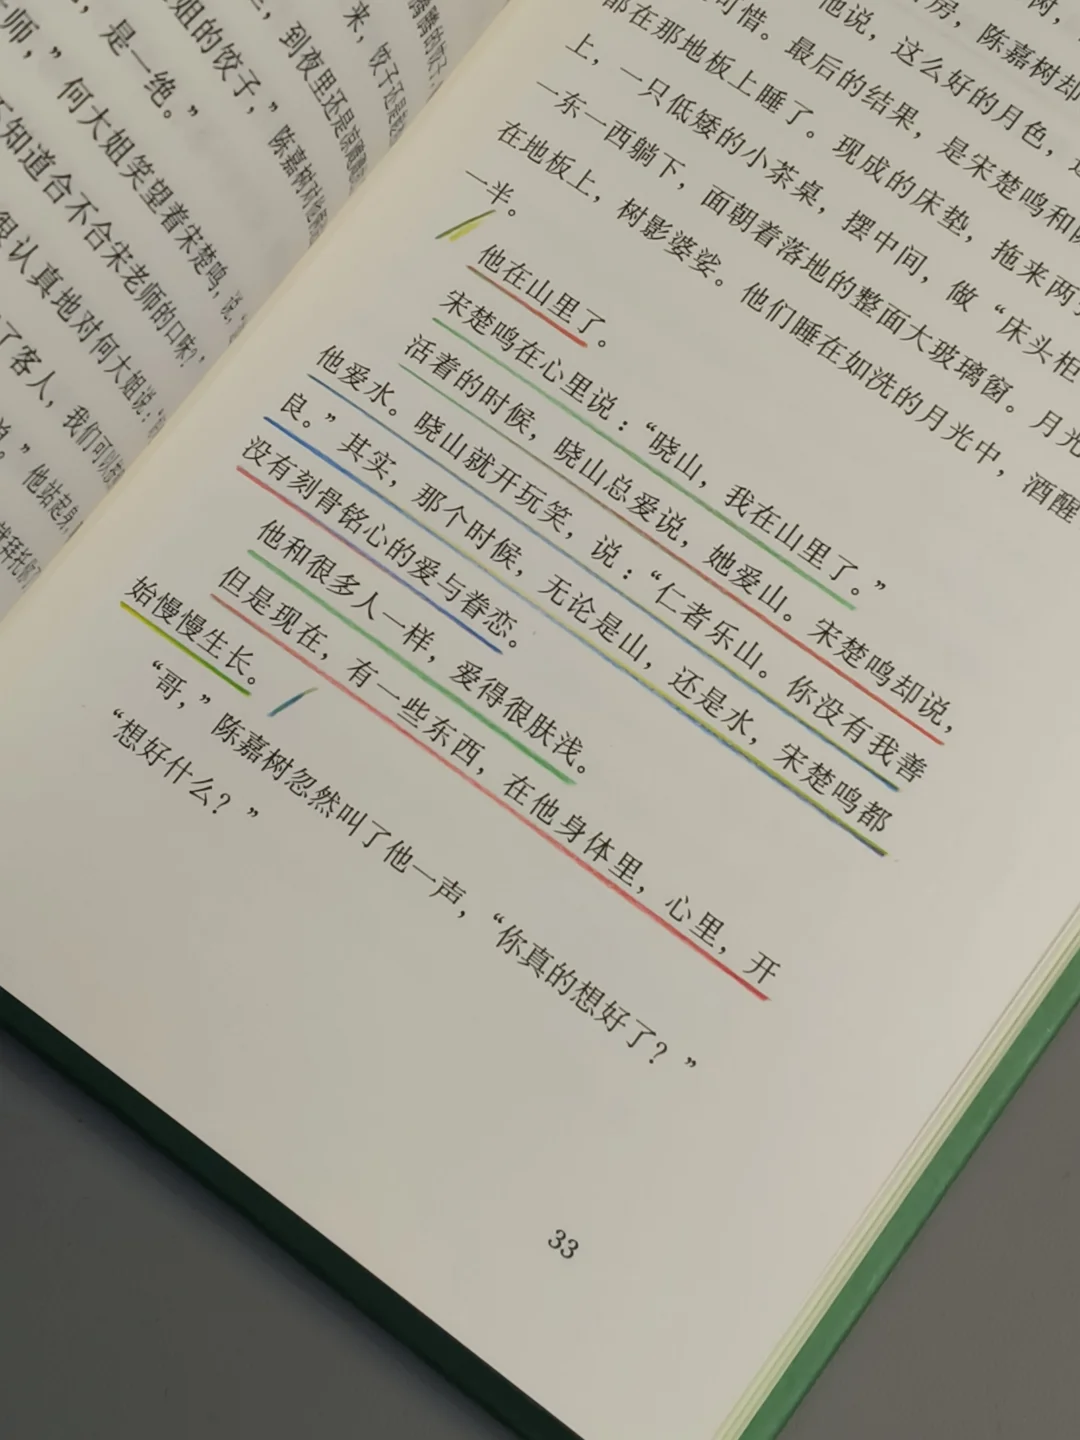 是一绝。”
师，”何大姐笑望着宋楚鸣，说，
不知道合不合宋老师的口味？
很认真地对何大姐说：
了客人，我们可以
他站起身，
姐的饺子，”陈嘉树对他
到夜里还是
来，饺子还是
树，
房，陈嘉树却
他说，这么好的月色，
可惜。最后的结果，是宋楚鸣和
都在那地板上睡了。现成的床垫，拖来两
上，一只低矮的小茶桌，摆中间，做“床头柜
一东一西躺下，面朝着落地的整面大玻璃窗。月光
在地板上，树影婆娑。他们睡在如洗的月光中，酒醒
一半。
他在山里了。
宋楚鸣在心里说：“晓山，我在山里了。”
活着的时候，晓山总爱说，她爱山。宋楚鸣却说，
他爱水。晓山就开玩笑，说：“仁者乐山。你没有我善
良。”其实，那个时候，无论是山，还是水，宋楚鸣都
没有刻骨铭心的爱与眷恋。
他和很多人一样，爱得很肤浅。
但是现在，有一些东西，在他身体里，心里，开
始慢慢生长。
“哥，”陈嘉树忽然叫了他一声，“你真的想好了？”
“想好什么？”
33